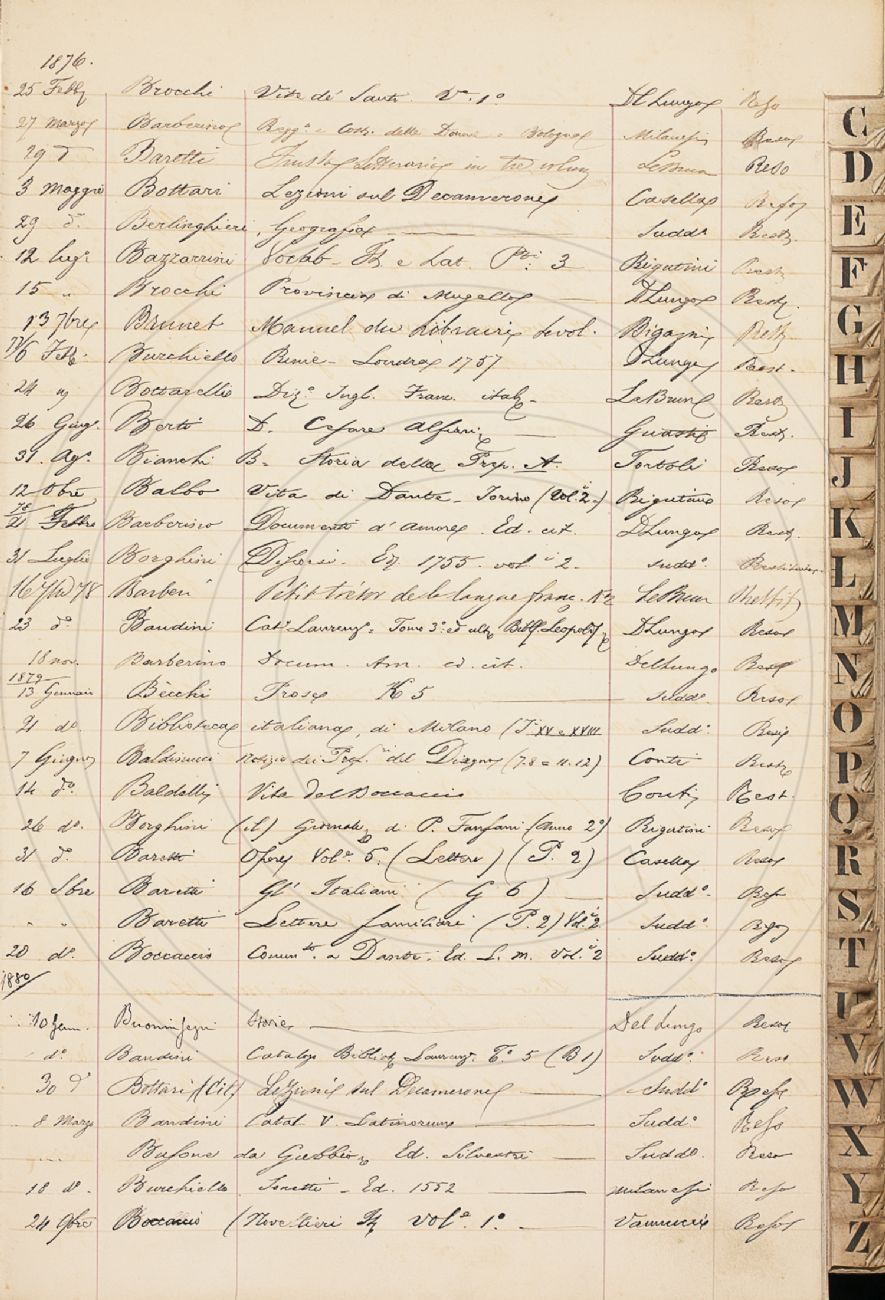 1876.
25 Febb Brocchi Vite de' Santi. V. 1° DLungo Reso
27 Marzo Barberino Regg. e Cost. delle Donne Bologna Milanesi Reso
29 d° Barotti in tre volumi Reso
3 Maggio Bottari Lezioni sul Decamerone Casella Reso
29 d°. Berlinghieri, Geografia Sudd° Rest.
12 lug° Bazzarrini Vocab. It. e Lat. 3 Rigutini Rest
15 " Brocchi Provincia di Mugello DLungo Rest.
13 7bre Brunet Manuel du Libraire Rest
Feb. Burchiello Rime - Londra 1757 DLungo Rest.
24 " Bottarelli Diz.° Ingl. Franc. ital. LeBrun Rest
26 Giug. Berti D. Cesare Alfieri Guasti Rest.
31. Ag. Bianchi B. Storia della A. Tortoli Reso
12 8bre Balbo Vita di Dante - Torino (Vol. 2.) Rigutini Reso
21 Febbr Barberino Documenti d'amore. Ed. cit. DLungo Rest.
31 Luglio Borghini Discorsi. Ed. 1755. vol. 2. Sudd°. Restituito
16 78 Petit trésor de la langue franc. LeBrun
23 d° Bandini Cat. Laurenz. Tomo 3° ed ult. Bibl. Leopold. DLungo Reso
18 nov. Barberino Docum. Am. ed. cit. DelLungo Reso
1879
13 Gennaio Becchi Prose K 5 Sudd°. Reso
21 d°. Biblioteca italiana, di Milano (T. XV e XVIII Sudd°. Resi
7 Giugno Baldinucci Notizie dei Prof. del Disegno (7. 8 e 11. 12) Conti Rest
14 d°. Baldelli Vita del Boccaccio Conti Rest.
26 d°. Borghini (il) Giornale di P. Fanfani (Anno 2°) Rigutini Reso
31 d°. Baretti Opere Vol. 6. (Lettere) (P. 2) Casella Reso
16 8bre Baretti Gl' Italiani (G 6) Sudd°. Reso
" " Baretti Lettere familiari (P. 2) Vol. 2 Sudd° Reso
20 d°. Boccaccio Comm.to a Dante. Ed. L. M. Vol. 2 Sudd°. Reso
1880
10 Genn. Buoninsegni Storie Del Lungo Reso
" d°. Bandini Catalogo Bibliot. Laurenz. T. 5 (B1) Sudd°. Reso
30 d° Bottari (Cit) Lezioni sul Decamerone Sudd° Reso
8 Marzo Bandini Catal V Latinorum Sudd°. Reso
Busone da Gubbio, Ed. Silvestri Sudd°. Reso
18 d°. Burchiello Sonetti - Ed. 1552 Milanesi Reso
24 9bre Boccaccio (Novellieri It. Vol. 1°. Vannucci Reso
C
D
E
F
G
H
I
J
K
L
M
N
O
P
Q
R
S
T
U
V
W
X
Y
Z